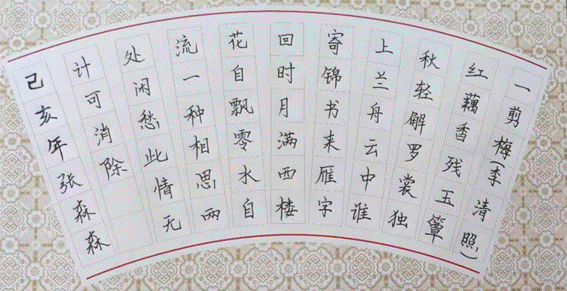 一剪梅(李清照)
红藕香残玉簟
秋轻解罗裳独
上兰舟云中谁
寄锦书来雁字
回时月满西楼
花自飘零水自
流一种相思两
处闲愁此情无
计可消除
己亥年张森森